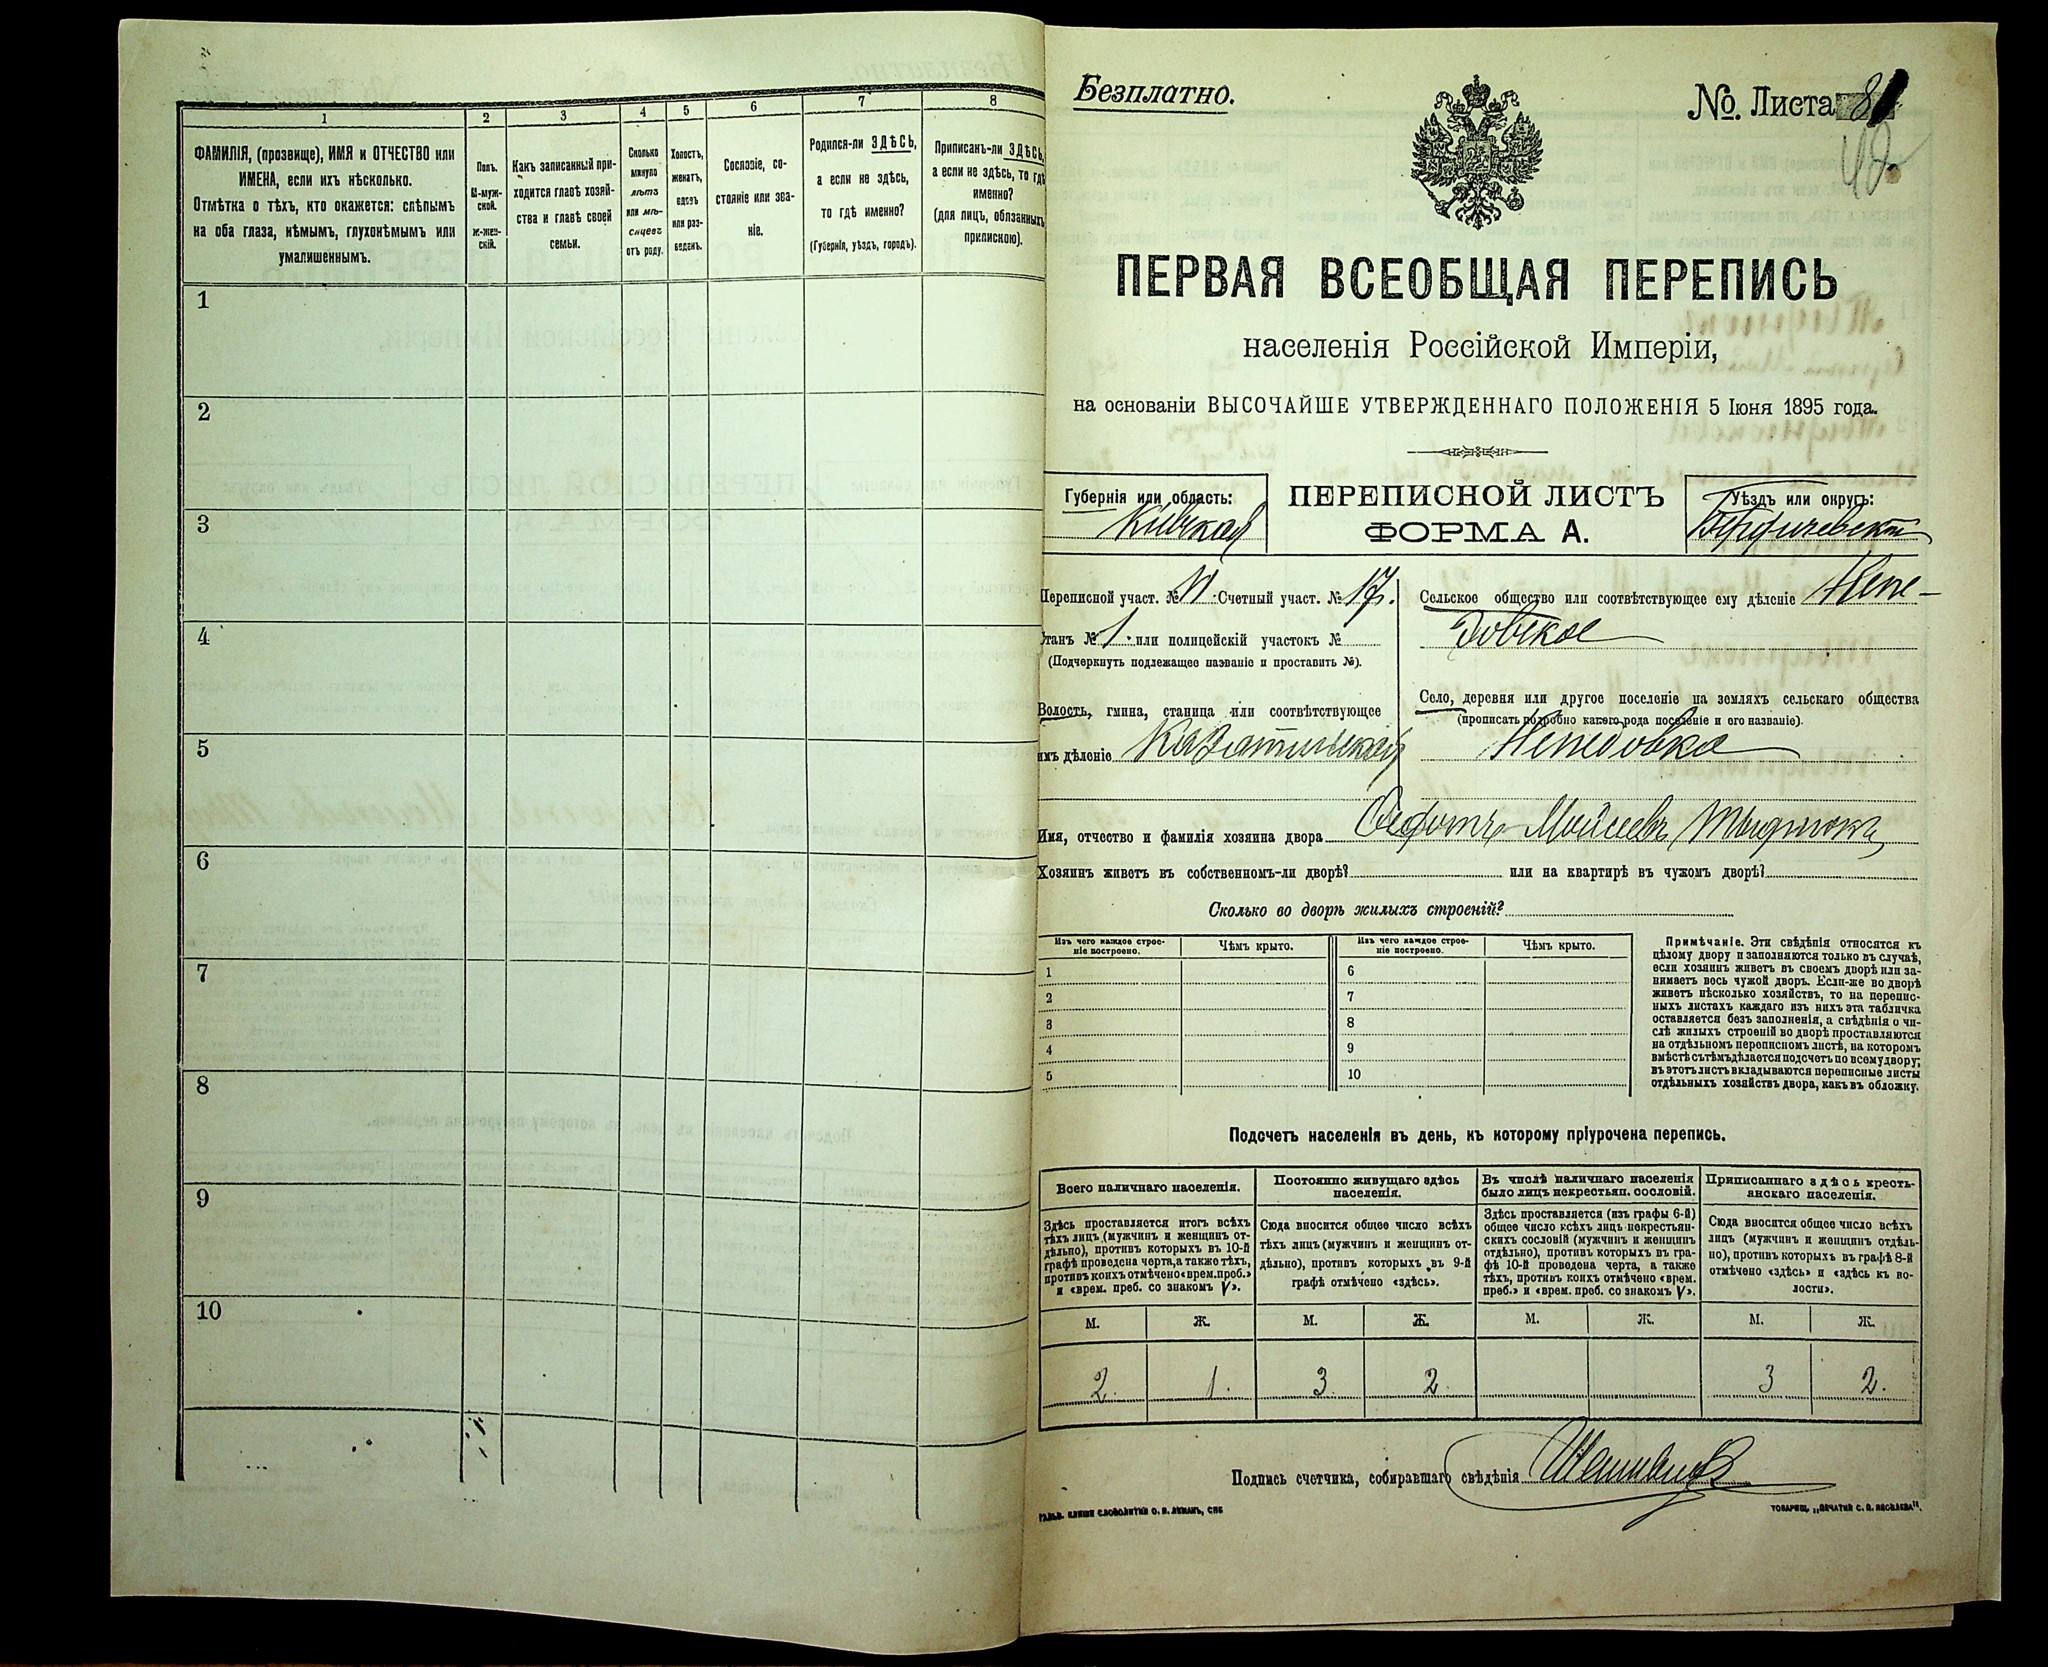 1
2
3
4
5
6
7
8
ФАМИЛІЯ, (прозвище), ИМЯ и ОТЧЕСТВО или
ИМЕНА, если ихъ нѣсколько.
Отмѣтка о тѣхъ, кто окажется: слѣпымъ
на оба глаза, нѣмымъ, глухонѣмымъ или
умалишеннымъ.
Полъ.
М-муж-
ской.
Ж-жен-
скій.
Какъ записанный при-
ходится главѣ хозяй-
ства и главѣ своей
семьи.
Сколько
минуло
лѣтъ
или мѣ-
сяцевъ
отъ роду.
Холостъ,
женатъ,
вдовъ
или раз-
веденъ.
Сословіе, со-
стояніе или зва-
ніе.
Родился-ли ЗДѢСЬ,
а если не здѣсь,
то гдѣ именно?
(Губернія, уѣздъ, городъ).
Приписанъ-ли ЗДѢСЬ,
а если не здѣсь, то гдѣ
именно?
(для лицъ, обязанныхъ
припискою).
1
2
3
4
5
6
7
8
9
10
Безплатно.
№. Листа 8
48.
ПЕРВАЯ ВСЕОБЩАЯ ПЕРЕПИСЬ
населенія Россійской Имперіи,
на основаніи ВЫСОЧАЙШЕ УТВЕРЖДЕННАГО ПОЛОЖЕНІЯ 5 Іюня 1895 года.
Губернія или область:
Кіевская
ПЕРЕПИСНОЙ ЛИСТЪ
ФОРМА А.
Уѣздъ или округъ:
Бердичевскій
Переписной участ. № VI Счетный участ. № 17.
Станъ № 1. или полицейскій участокъ №
(Подчеркнуть подлежащее названіе и проставить №).
Волость, гмина, станица или соотвѣтствующее
имъ дѣленіе Казатинская
Сельское общество или соотвѣтствующее ему дѣленіе Непе-
довское
Село, деревня или другое поселеніе на земляхъ сельскаго общества
(прописать подробно какого рода поселеніе и его названіе).
Непедовка
Имя, отчество и фамилія хозяина двора Федотъ Мойсеевъ Тыдтюкъ
Хозяинъ живетъ въ собственномъ-ли дворѣ? или на квартирѣ въ чужомъ дворѣ?
Сколько во дворѣ жилыхъ строеній?
Изъ чего каждое строе-
ніе построено.
Чѣмъ крыто.
Изъ чего каждое строе-
ніе построено.
Чѣмъ крыто.
1
2
3
4
5
6
7
8
9
10
Примѣчаніе. Эти свѣдѣнія относятся къ
цѣлому двору и заполняются только въ случаѣ,
если хозяинъ живетъ въ своемъ дворѣ или за-
нимаетъ весь чужой дворъ. Если-же во дворѣ
живетъ нѣсколько хозяйствъ, то на перепис-
ныхъ листахъ каждаго изъ нихъ эта табличка
оставляется безъ заполненія, а свѣдѣнія о чи-
слѣ жилыхъ строеній во дворѣ проставляются
на отдѣльномъ переписномъ листѣ, на которомъ
вмѣстѣ съ тѣмъ дѣлается подсчетъ по всему двору;
въ этотъ листъ вкладываются переписные листы
отдѣльныхъ хозяйствъ двора, какъ въ обложку.
Подсчетъ населенія въ день, къ которому пріурочена перепись.
Всего наличнаго населенія.
Здѣсь проставляется итогъ всѣхъ
тѣхъ лицъ (мужчинъ и женщинъ от-
дѣльно), противъ которыхъ въ 10-й
графѣ проведена черта, а также тѣхъ,
противъ коихъ отмѣчено «врем. преб.»
и «врем. преб. со знакомъ V».
Постоянно живущаго здѣсь
населенія.
Сюда вносится общее число всѣхъ
тѣхъ лицъ (мужчинъ и женщинъ от-
дѣльно), противъ которыхъ въ 9-й
графѣ отмѣчено «здѣсь».
Въ числѣ наличнаго населенія
было лицъ некрестьян. сословій.
Здѣсь проставляется (изъ графы 6-й)
общее число всѣхъ лицъ некрестьян-
скихъ сословій (мужчинъ и женщинъ
отдѣльно), противъ которыхъ въ гра-
фѣ 10-й проведена черта, а также
тѣхъ, противъ коихъ отмѣчено «врем.
преб.» и «врем. преб. со знакомъ V».
Приписаннаго здѣсь кресть-
янскаго населенія.
Сюда вносится общее число всѣхъ
лицъ (мужчинъ и женщинъ отдѣль-
но), противъ которыхъ въ графѣ 8-й
отмѣчено «здѣсь» и «здѣсь къ во-
лости».
М. Ж. М. Ж. М. Ж. М. Ж.
2. 1. 3 2 3 2.
Подпись счетчика, собиравшаго свѣдѣнія
ГАЛЬВ. КЛИШЕ СЛОВОЛИТНИ О. И. ЛЕМАНЪ, СПБ
ТОВАРИЩ. „ПЕЧАТНЯ С. П. ЯКОВЛЕВА“.